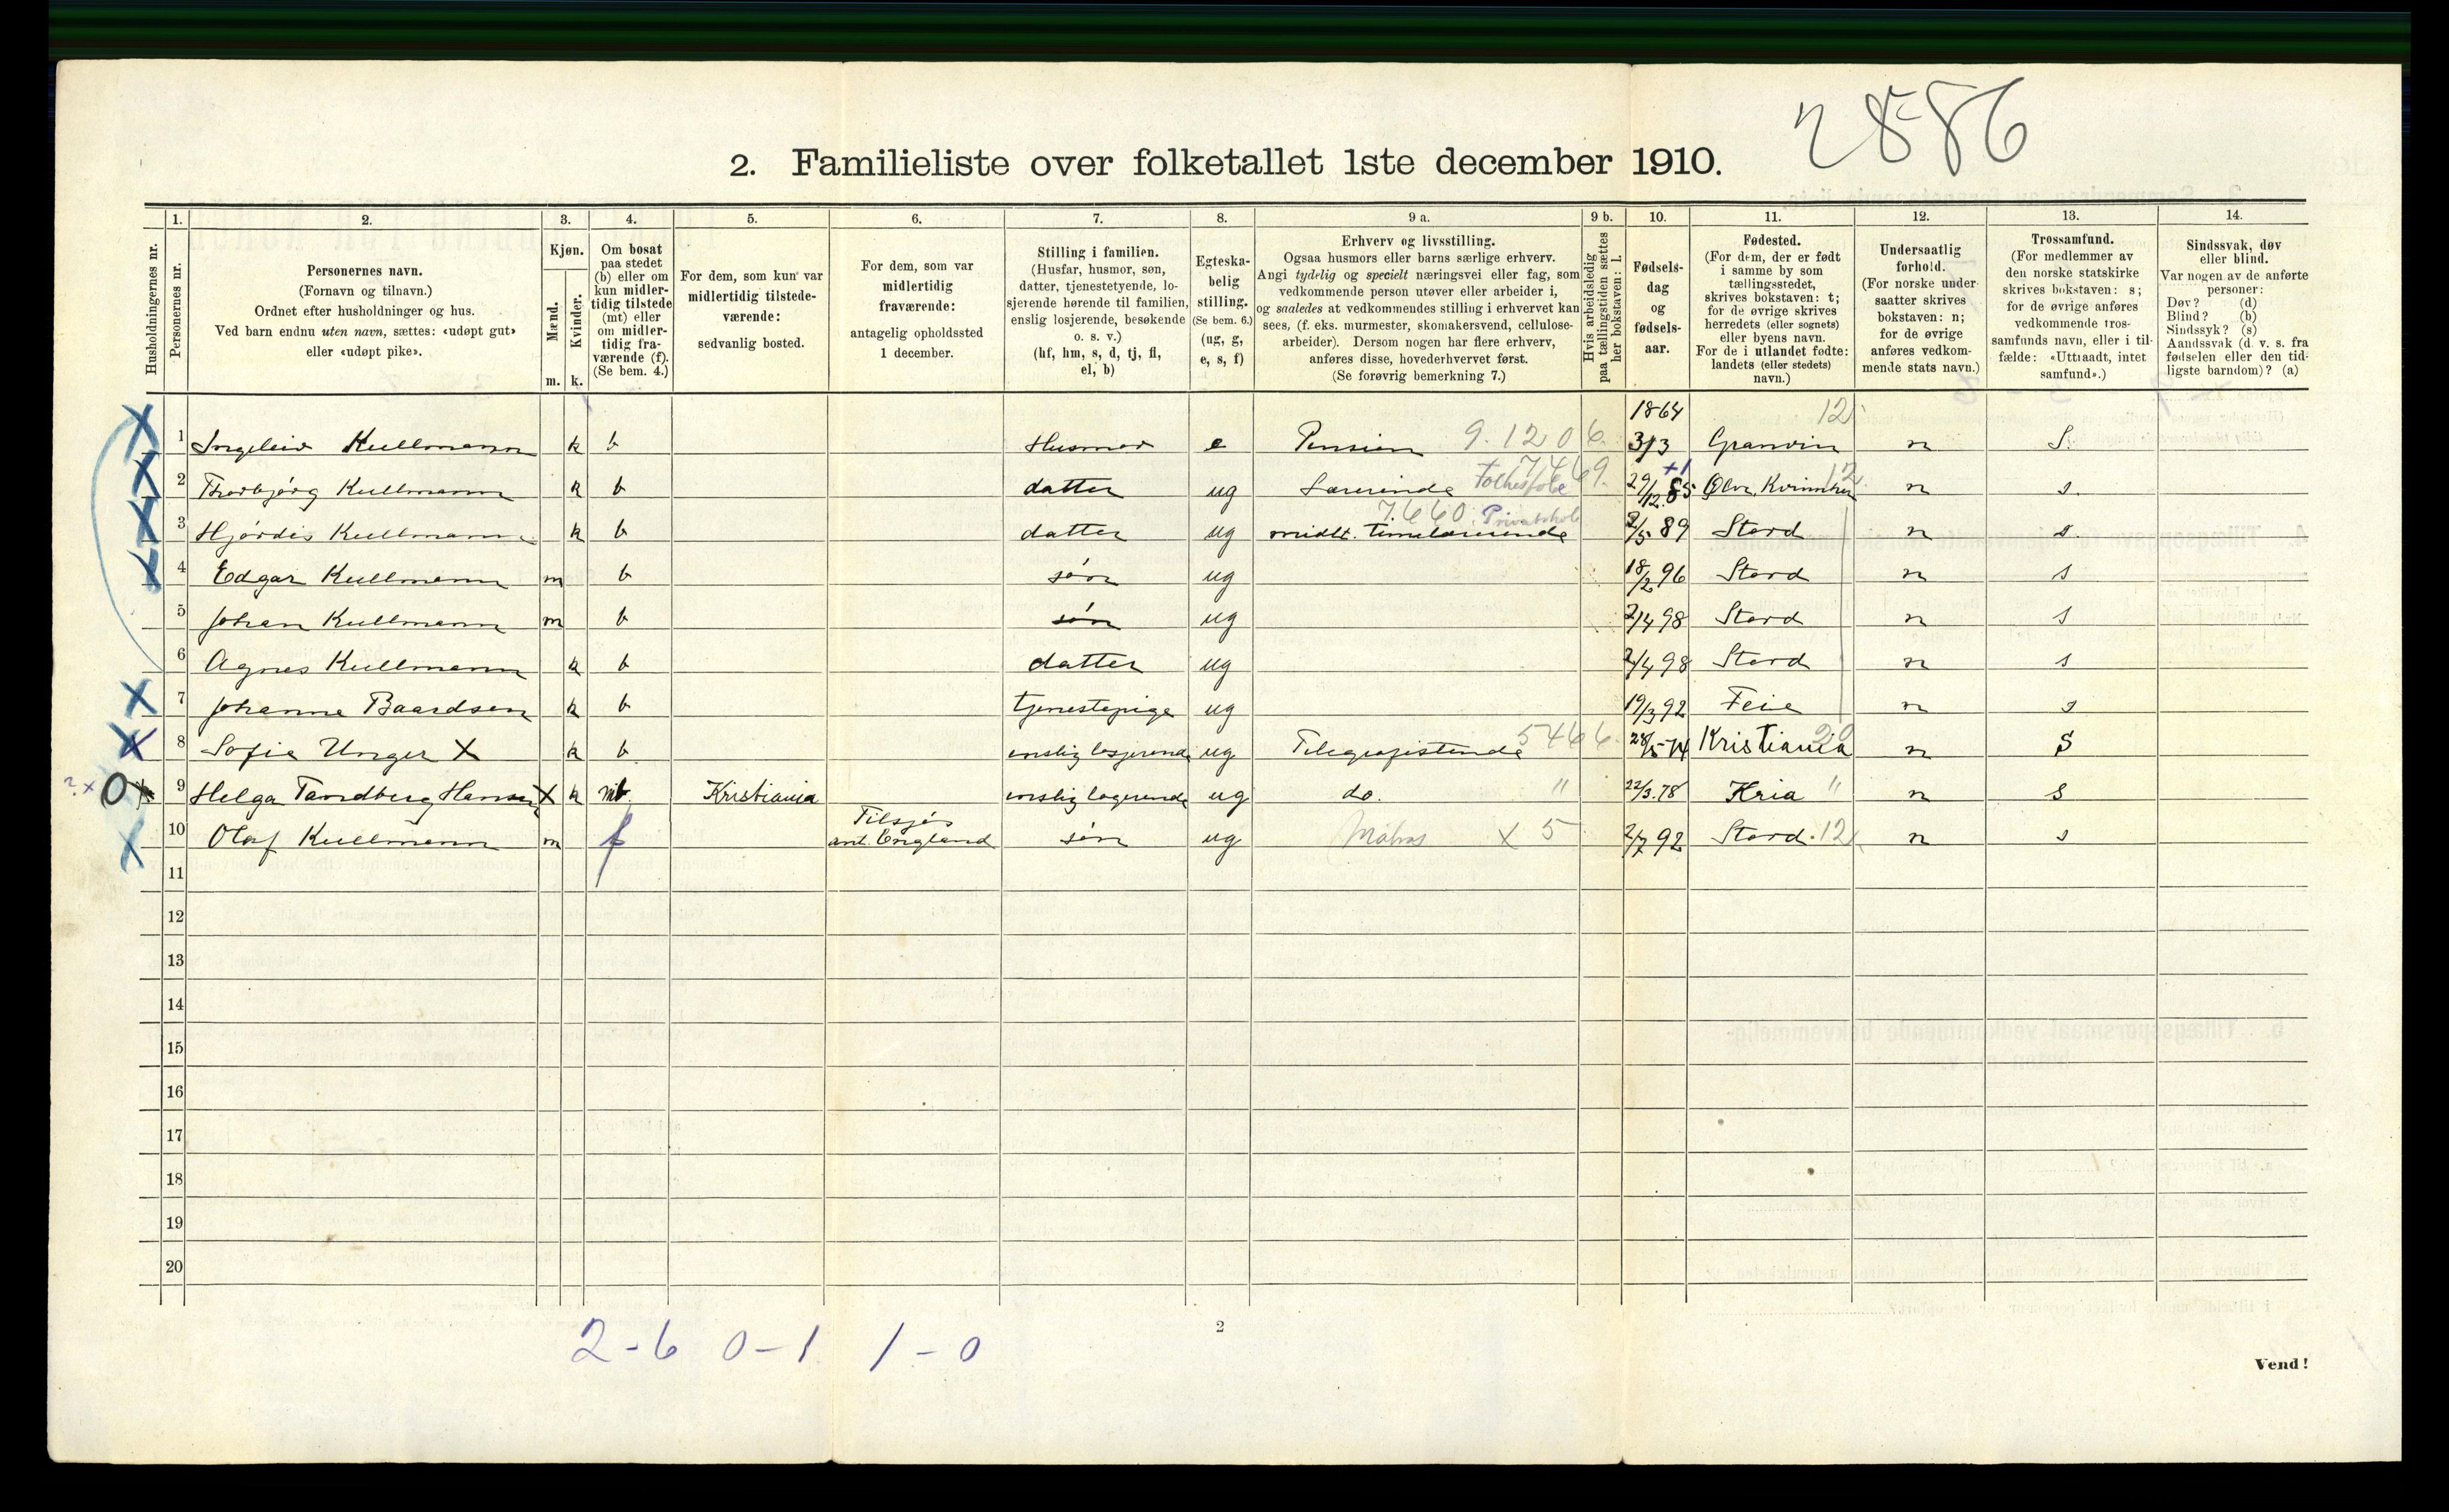 2886
2. Familieliste over folketallet 1ste december 1910.
Husholdningernes nr.
1. Personernes nr.
2. Personernes navn.
(Fornavn og tilnavn.)
Ordnet efter husholdninger og hus.
Ved barn endnu uten navn, sættes: «udøpt gut»
eller «udøpt pike».
3. Kjøn.
Mænd. m.
Kvinder. k.
4. Om bosat
paa stedet
(b) eller om
kun midler-
tidig tilstede
(mt) eller
om midler-
tidig fra-
værende (f).
(Se bem. 4.)
5. For dem, som kun var
midlertidig tilstede-
værende:
sedvanlig bosted.
6. For dem, som var
midlertidig
fraværende:
antagelig opholdssted
1 december.
7. Stilling i familien.
(Husfar, husmor, søn,
datter, tjenestetyende, lo-
sjerende hørende til familien,
enslig losjerende, besøkende
o. s. v.)
(hf, hm, s, d, tj, fl,
el, b)
8. Egteska-
belig
stilling.
(Se bem. 6.)
(ug, g,
e, s, f)
9 a. Erhverv og livsstilling.
Ogsaa husmors eller barns særlige erhverv.
Angi tydelig og specielt næringsvei eller fag, som
vedkommende person utøver eller arbeider i,
og saaledes at vedkommendes stilling i erhvervet kan
sees, (f. eks. murmester, skomakersvend, cellulose-
arbeider). Dersom nogen har flere erhverv,
anføres disse, hovederhvervet først.
(Se forøvrig bemerkning 7.)
9 b. Hvis arbeidsledig
paa tællingstiden sættes
her bokstaven: l.
10. Fødsels-
dag
og
fødsels-
aar.
11. Fødested.
(For dem, der er født
i samme by som
tællingsstedet,
skrives bokstaven: t;
for de øvrige skrives
herredets (eller sognets)
eller byens navn.
For de i utlandet fødte:
landets (eller stedets)
navn.)
12. Undersaatlig
forhold.
(For norske under-
saatter skrives
bokstaven: n;
for de øvrige
anføres vedkom-
mende stats navn.)
13. Trossamfund.
(For medlemmer av
den norske statskirke
skrives bokstaven: s;
for de øvrige anføres
vedkommende tros-
samfunds navn, eller i til-
fælde: «Uttraadt, intet
samfund».)
14. Sindssvak, døv
eller blind.
Var nogen av de anførte
personer:
Døv? (d)
Blind? (b)
Sindssyk? (s)
Aandssvak (d. v. s. fra
fødselen eller den tid-
ligste barndom)? (a)
1864 12
X 1 Ingeleiv Kullmann k b Husmor e Pension 9.1206. 3/3 Granvin n S.
X 2 Thorbjørg Kullmann k b datter ug Lærerinde Folkeskole 7469. 29/12 85 +1 Ølve, Kvinnher 12. n s.
X 3 Hjørdis Kullmann k b datter ug midlt. timelærerinde 7.660. Privatskole 2/5 89 Stord n s.
X 4 Edgar Kullmann m b søn ug 18/2 96 Stord n s
5 Johan Kullmann m b søn ug 2/4 98 Stord n s
6 Agnes Kullmann k b datter ug 2/4 98 Stord n s
X 7 Johanne Baardsen k b tjenestepige ug 19/3 92 Feie n s
X 8 Sofie Unger X k b enslig losjerende ug Telegrafistinde 5466. 28/5-74 Kristiania 20 n S
?x 0x 9 Helga Tandberg Hansen X k mt Kristiania enslig logerende ug do. " 22/3.78 Kria " n s
X 10 Olaf Kullmann m f Tilsjøs
ant. England søn ug Matros X 5 2/7 92 Stord. 12 n s
11
12
13
14
15
16
17
18
19
20
2-6 0-1 1-0
2
Vend!